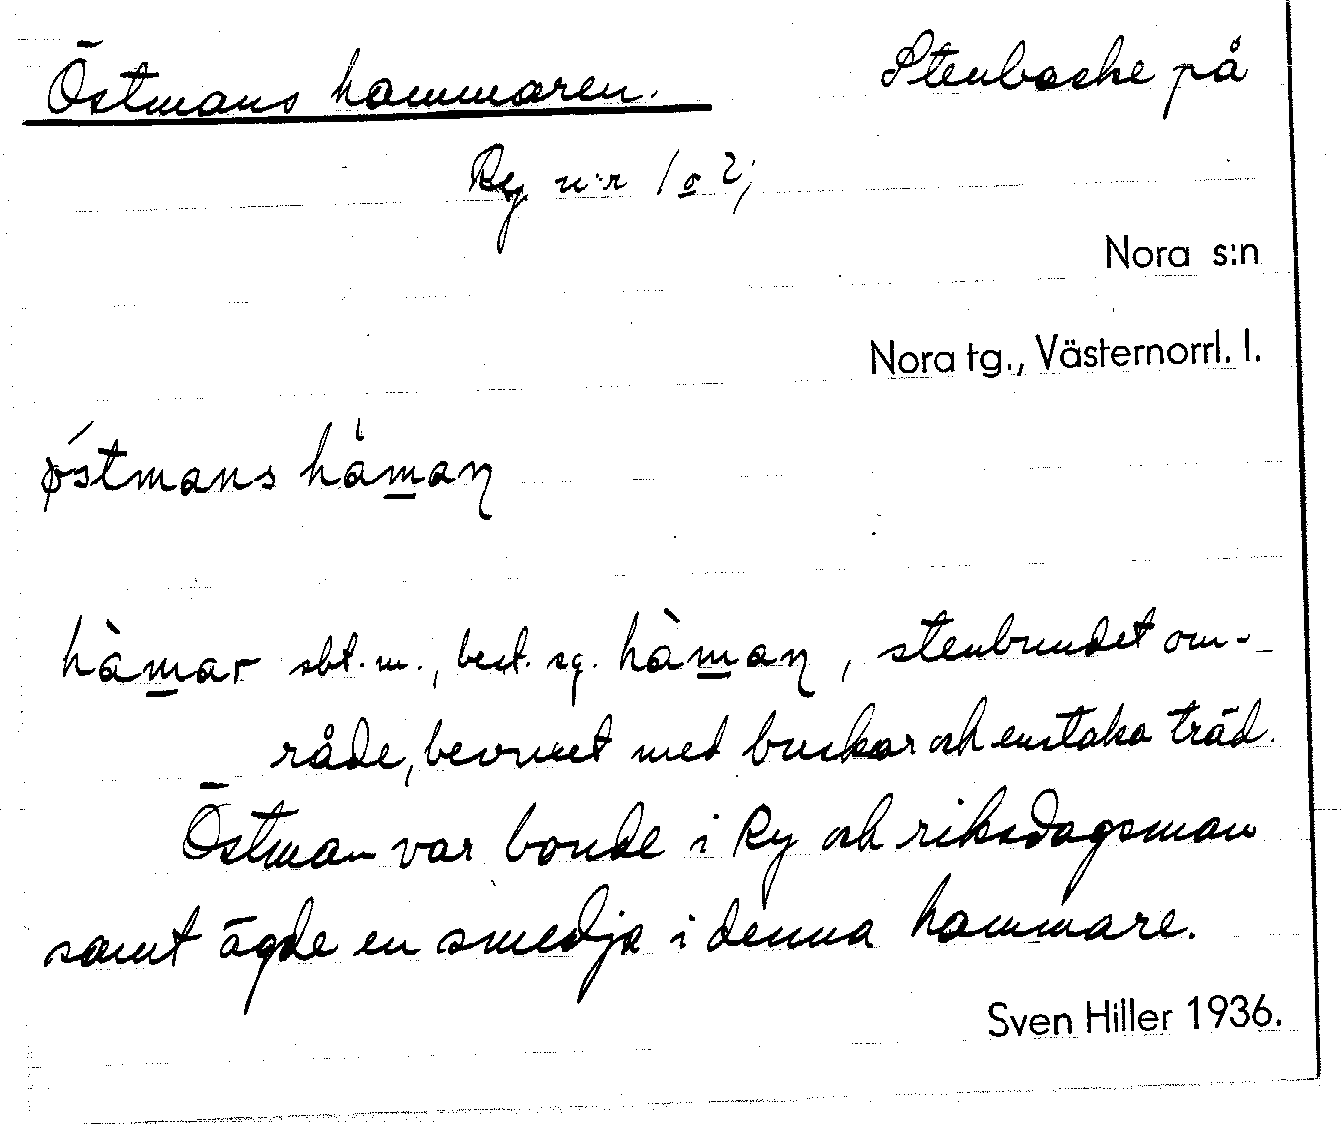 Östmans hammaren. Stenbacke på
Ry n:r 1 o 2;
Nora s:n
Nora tg., Västernorrl. l.
østmans hàm̲aɳ
hàm̲ar sbt. m., best. sg. hàm̲aɳ, stenbundet om-
råde, bevuxet med buskar och enstaka träd.
Östman var bonde i Ry och riksdagsman
samt ägde en smedja i denna hammare.
Sven Hiller 1936.